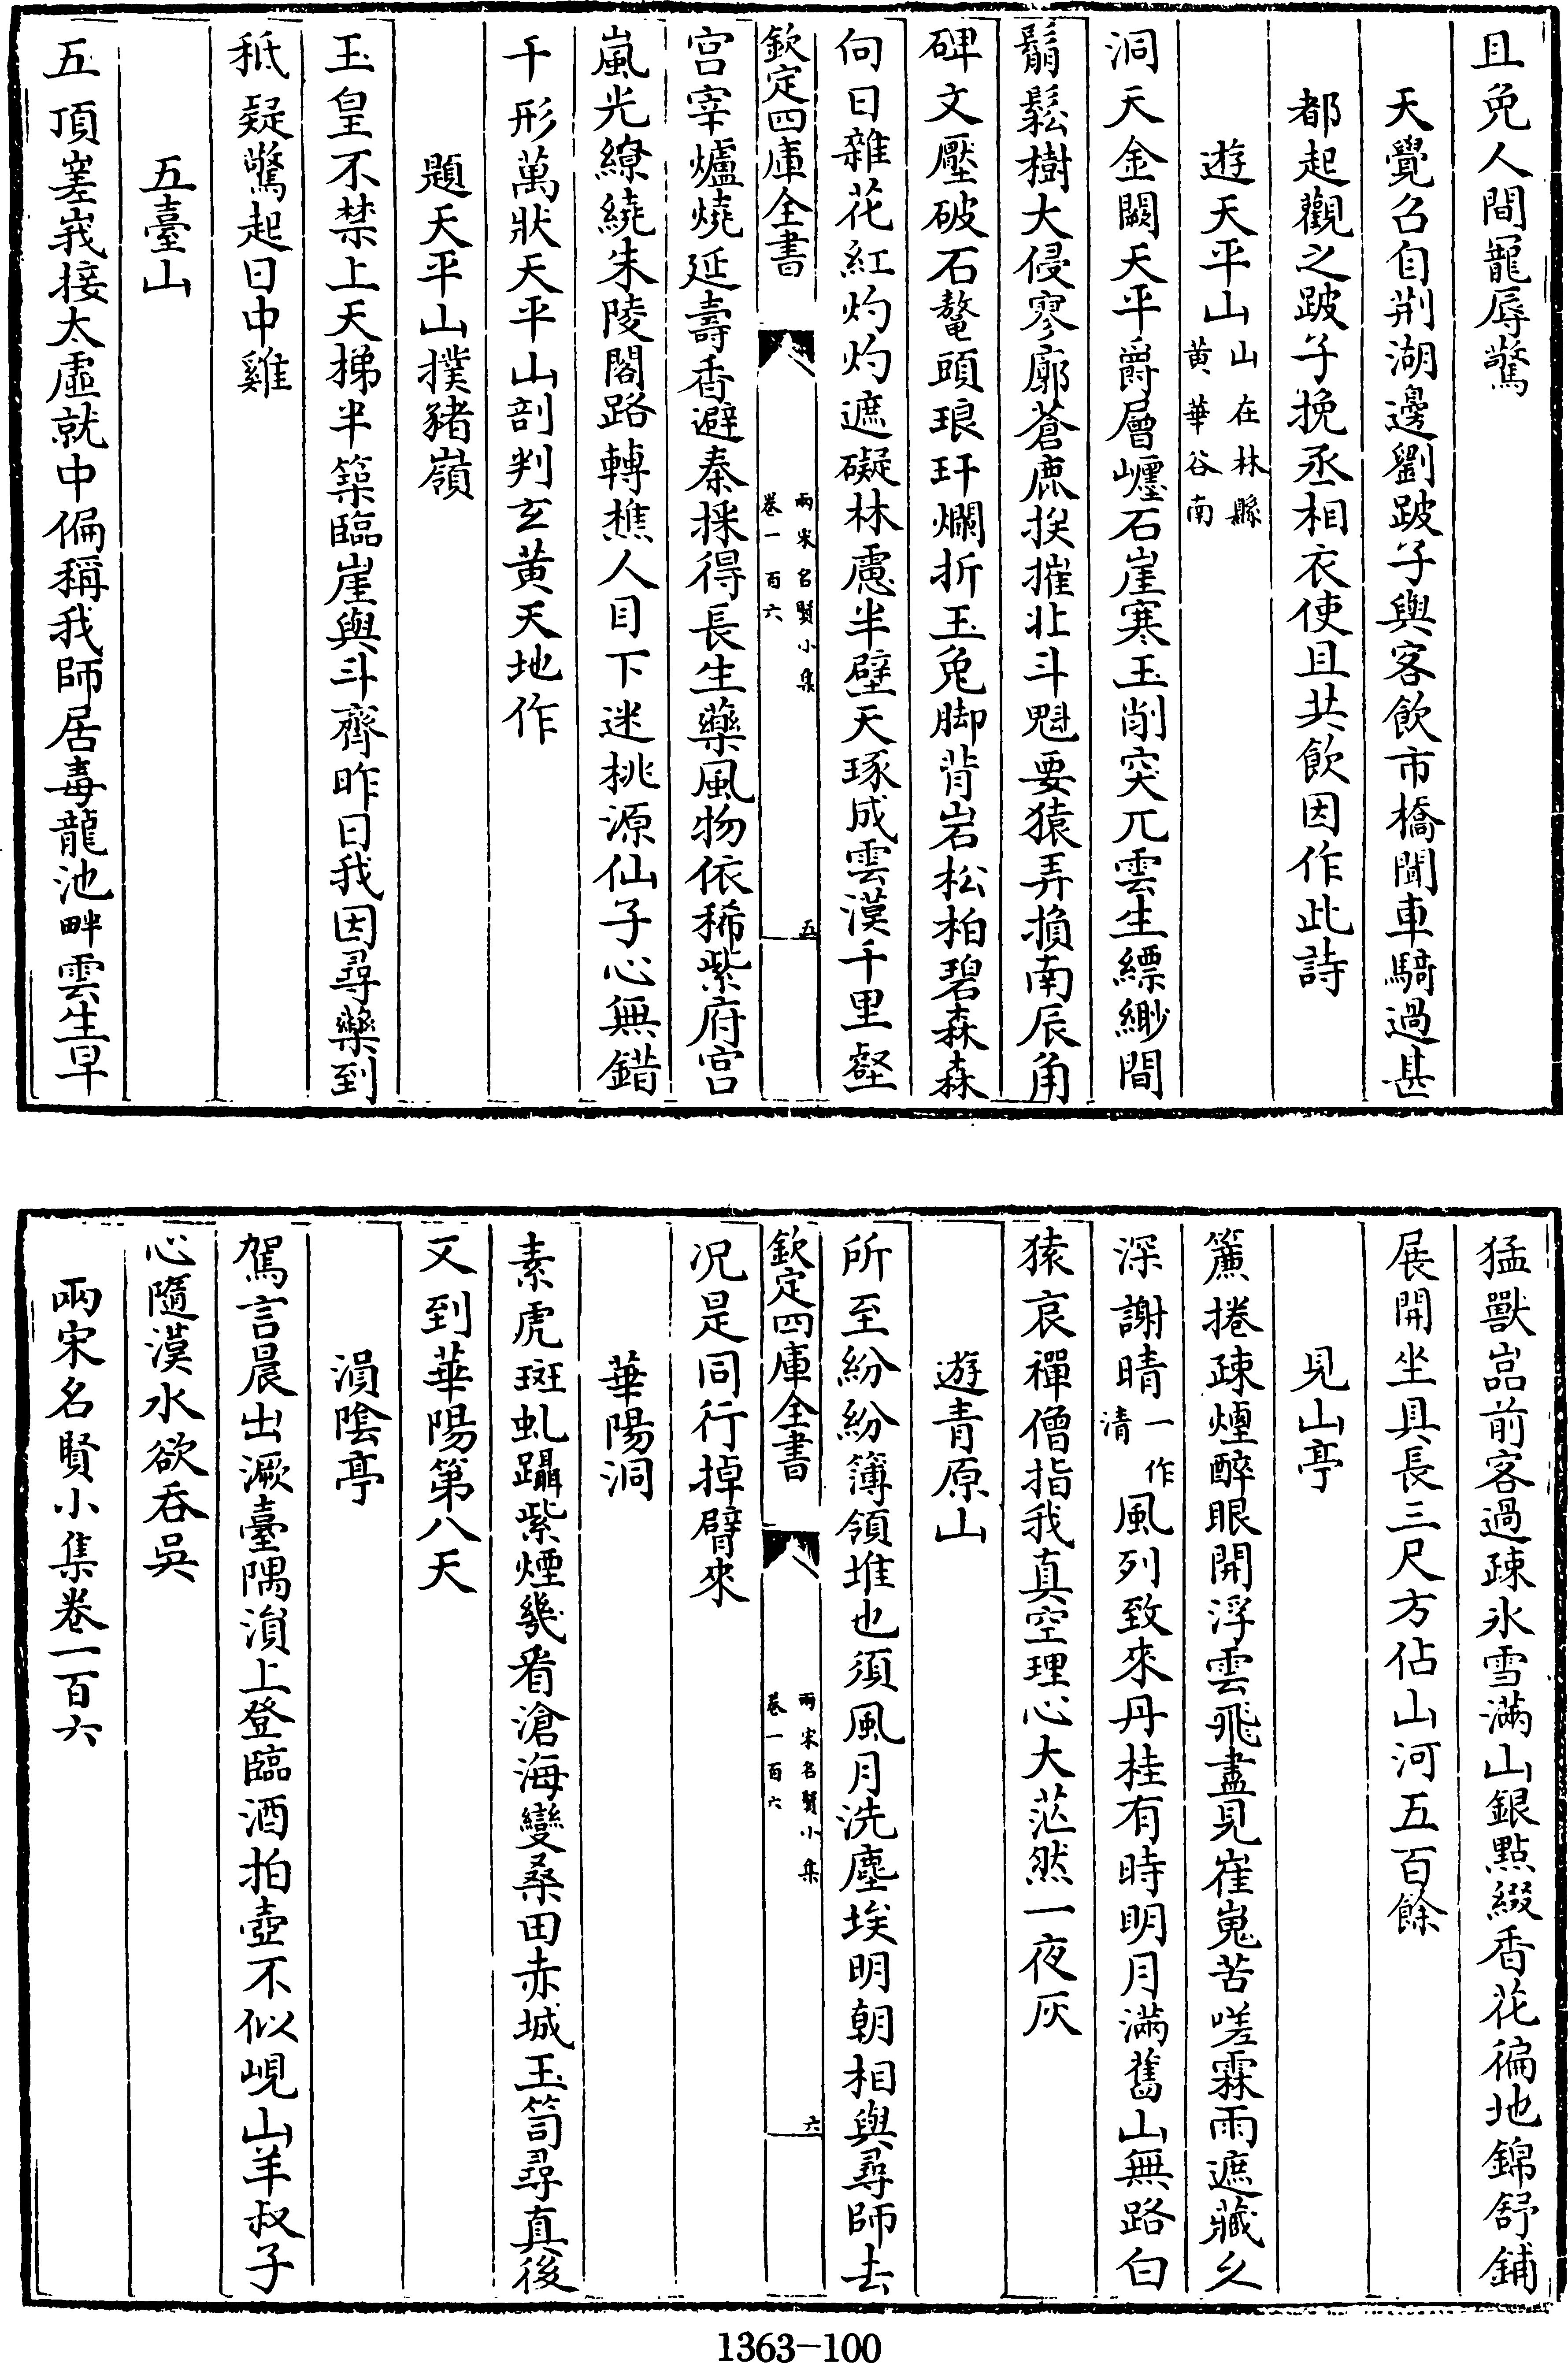 且免人間寵辱驚
天覺召自荆湖邊劉跛子與客飲市橋聞車騎過甚
都起觀之跛子挽丞相衣使且共飲因作此詩
遊天平山山在林縣黄華谷南
洞天金闕天平爵層巘石崖寒玉削突兀雲生縹緲間
鬅鬆樹大侵寥廓蒼鹿挨摧北斗魁要猿弄損南辰角
碑文壓破石鼇頭琅玕爛折玉兔脚背岩松柏碧森森
向日雜花紅灼灼遮礙林慮半壁天琢成雲漠千里壑
欽定四庫全書
兩宋名賢小集
卷一百六
五
宫宰爐燒延壽香避秦採得長生藥風物依稀紫府宫
嵐光繚繞朱陵閣路轉樵人目下迷桃源仙子心無錯
千形萬狀天平山剖判玄黄天地作
題天平山撲豬嶺
玉皇不禁上天梯半築臨崖與斗齊昨日我因尋藥到
秪疑驚起日中雞
五臺山
五頂嵳峩接太虛就中偏稱我師居毒龍池畔雲生早
猛獸嵓前客過疎氷雪滿山銀點綴香花徧地錦舒鋪
展開坐具長三尺方佔山河五百餘
見山亭
簾捲疎煙醉眼開浮雲飛盡見崔嵬苦嗟霖雨遮藏久
深謝晴一作清風列致來丹桂有時明月滿舊山無路白
猿哀禪僧指我真空理心大茫然一夜灰
遊青原山
所至紛紛簿領堆也須風月洗塵埃明朝相與尋師去
欽定四庫全書
兩宋名賢小集
卷一百六
六
况是同行掉臂來
華陽洞
素虎斑虬躡紫煙幾看滄海變桑田赤城玉笥尋真後
又到華陽第八天
溳陰亭
駕言晨出灝臺隅溳上登臨酒拍壺不似峴山羊叔子
心隨漠水欲吞吳
兩宋名賢小集卷一百六
1363-100